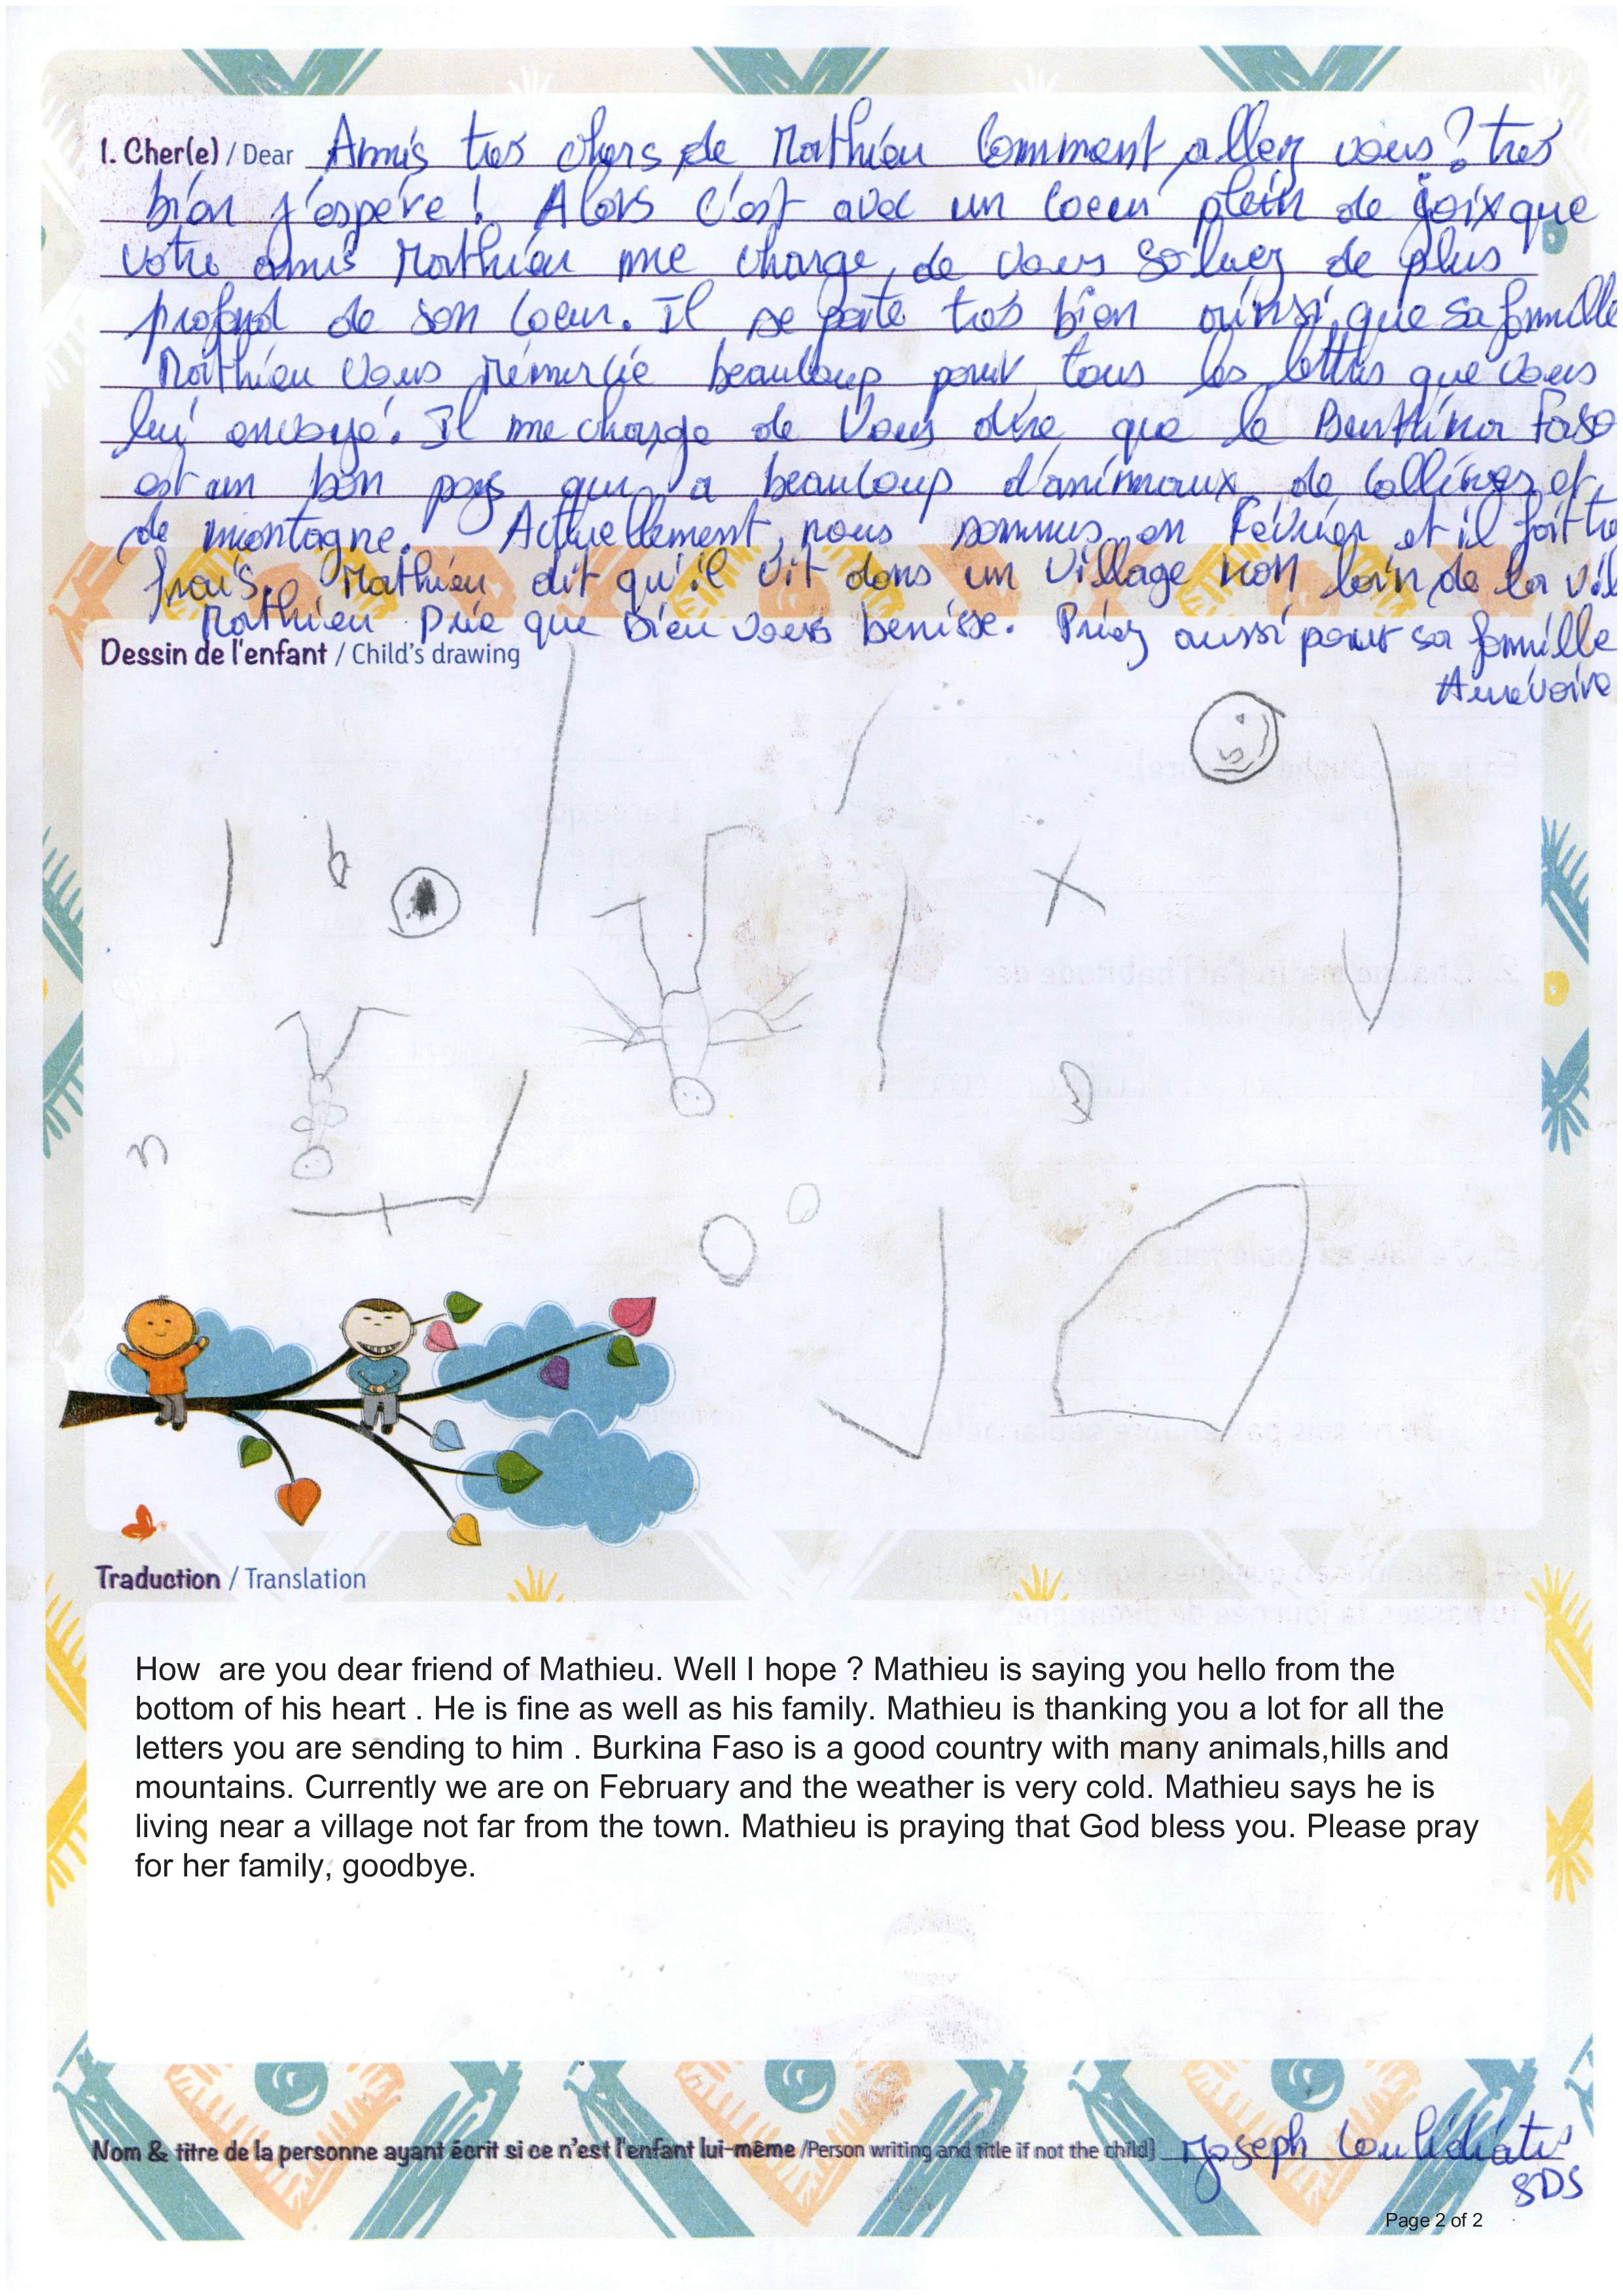 1. Cher(e) / Dear Amis tres chers de Mathieu Comment allez vous? tres
bien j'espére! Alors c'est avec un coeur plein de joix que
votre amis Mathieu me charge de vous saluez de plus
profond de son coeur. Il se porte tres bien ainsi que sa famille
Mathieu vous rémercie beaucoup pour tous les lettres que vous
lui envoyé. Il me charge de vous dire que le Burkina Faso
est un bon pays qui a beaucoup d'animaux de collines et
de montagne. Actuellement, nous sommes en Février et il fait tre
frais. Mathieu dit qu'il vit dans un village non loin de la vil
Mathieu Prie que Dieu vous benisse. Priez aussi pour sa famille
Dessin de l'enfant / Child's drawing
Aurevoire
Traduction / Translation
How are you dear friend of Mathieu. Well I hope ? Mathieu is saying you hello from the
bottom of his heart . He is fine as well as his family. Mathieu is thanking you a lot for all the
letters you are sending to him . Burkina Faso is a good country with many animals,hills and
mountains. Currently we are on February and the weather is very cold. Mathieu says he is
living near a village not far from the town. Mathieu is praying that God bless you. Please pray
for her family, goodbye.
Nom & titre de la personne ayant écrit si ce n'est l'enfant lui-même /Person writing and title if not the child) Joseph
SDS
Page 2 of 2